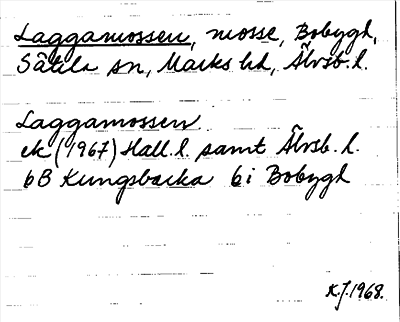 Laggamossen, mosse, Bobygd,
Sätila sn, Marks hd, Älvsb. l.
Laggamossen
ek (1967) Hall. l. samt Älvsb. l.
6B Kungsbacka 6i Bobygd
K.J. 1968.